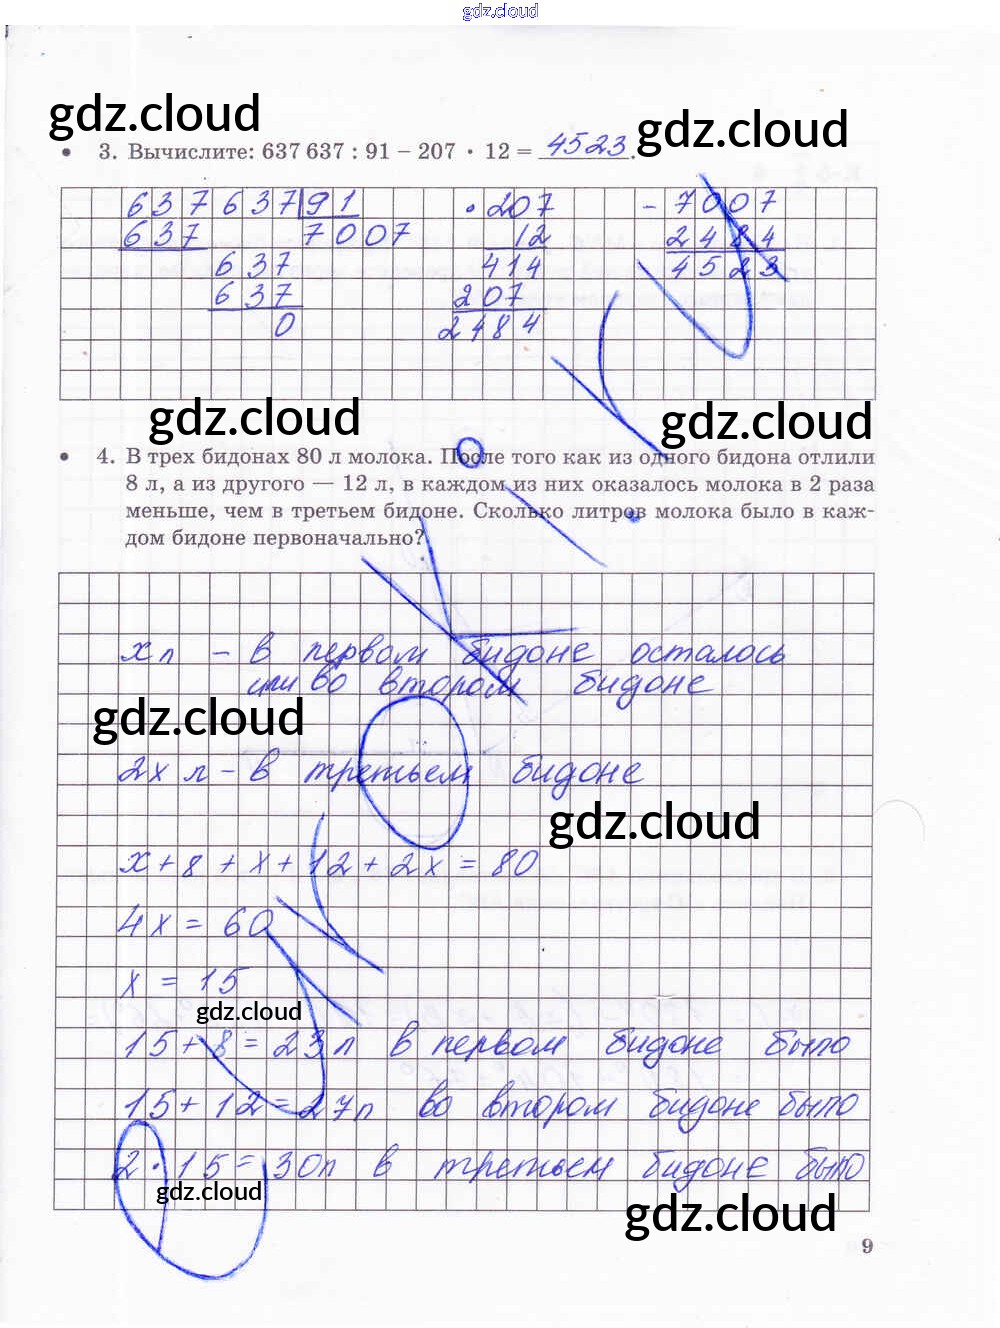 gdz.cloud
gdz.cloud
gdz.cloud
3. Вычислите: 637 637 : 91 – 207 · 12 = 4523.
637 637 | 91
637
7007
637
637
0
· 207
12
414
207
2484
– 7007
2484
4523
gdz.cloud
gdz.cloud
4. В трех бидонах 80 л молока. После того как из одного бидона отлили
8 л, а из другого — 12 л, в каждом из них оказалось молока в 2 раза
меньше, чем в третьем бидоне. Сколько литров молока было в каж-
дом бидоне первоначально?
x л – в первом бидоне осталось
или во втором бидоне
gdz.cloud
2x л – в третьем бидоне
gdz.cloud
x + 8 + x + 12 + 2x = 80
4x = 60
x = 15
gdz.cloud
15 + 8 = 23 л в первом бидоне было
15 + 12 = 27 л во втором бидоне было
2 · 15 = 30 л в третьем бидоне было
gdz.cloud
gdz.cloud
9